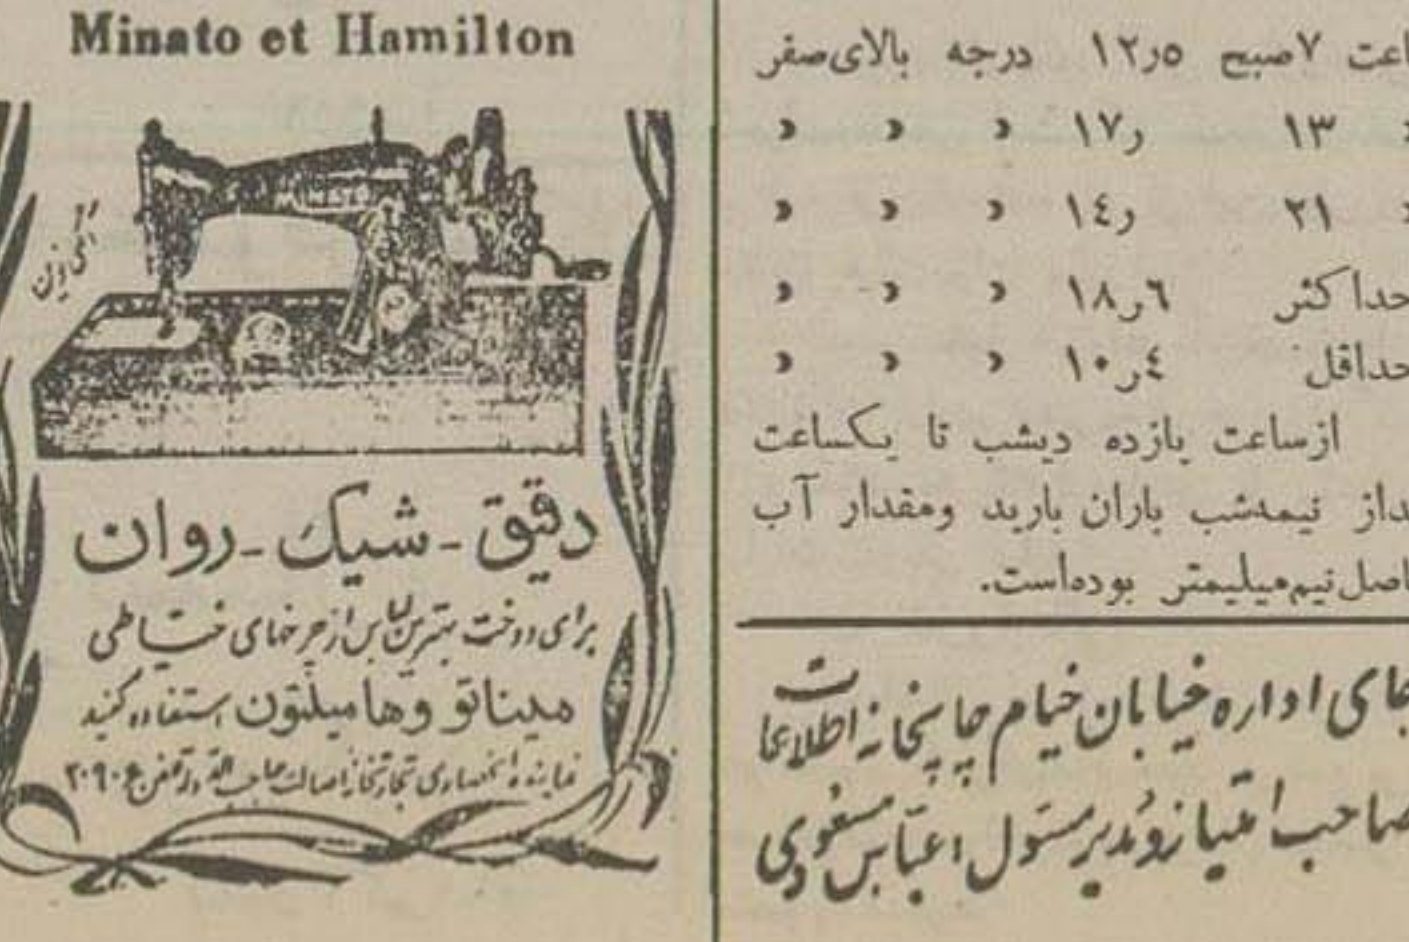 Minato et Hamilton
آگهی ون
دقیق - شیک - روان
برای دوخت بهترین لباس از چرخهای خیاطی
میناتو و هامیلتون استفاده کنید
نماینده انحصاری تجارتخانه اصالت حاجب الدوله تلفن
اعت ۷صبح ۱۲٫۵ درجه بالای صفر
» ۱۳ ۱۷٫ » » »
» ۲۱ ۱٤٫ » » »
حداکثر ۱۸٫٦ » » »
حداقل ۱۰٫٤ » » »
ازساعت یازده دیشب تا یکساعت
مداز نیمه‌شب باران بارید ومقدار آب
اصل نیم‌میلیمتر بوده‌است.
جای اداره خیابان خیام چاپخانه اطلاعات
صاحب امتیاز و مدیر مسئول : عباس مسعودی